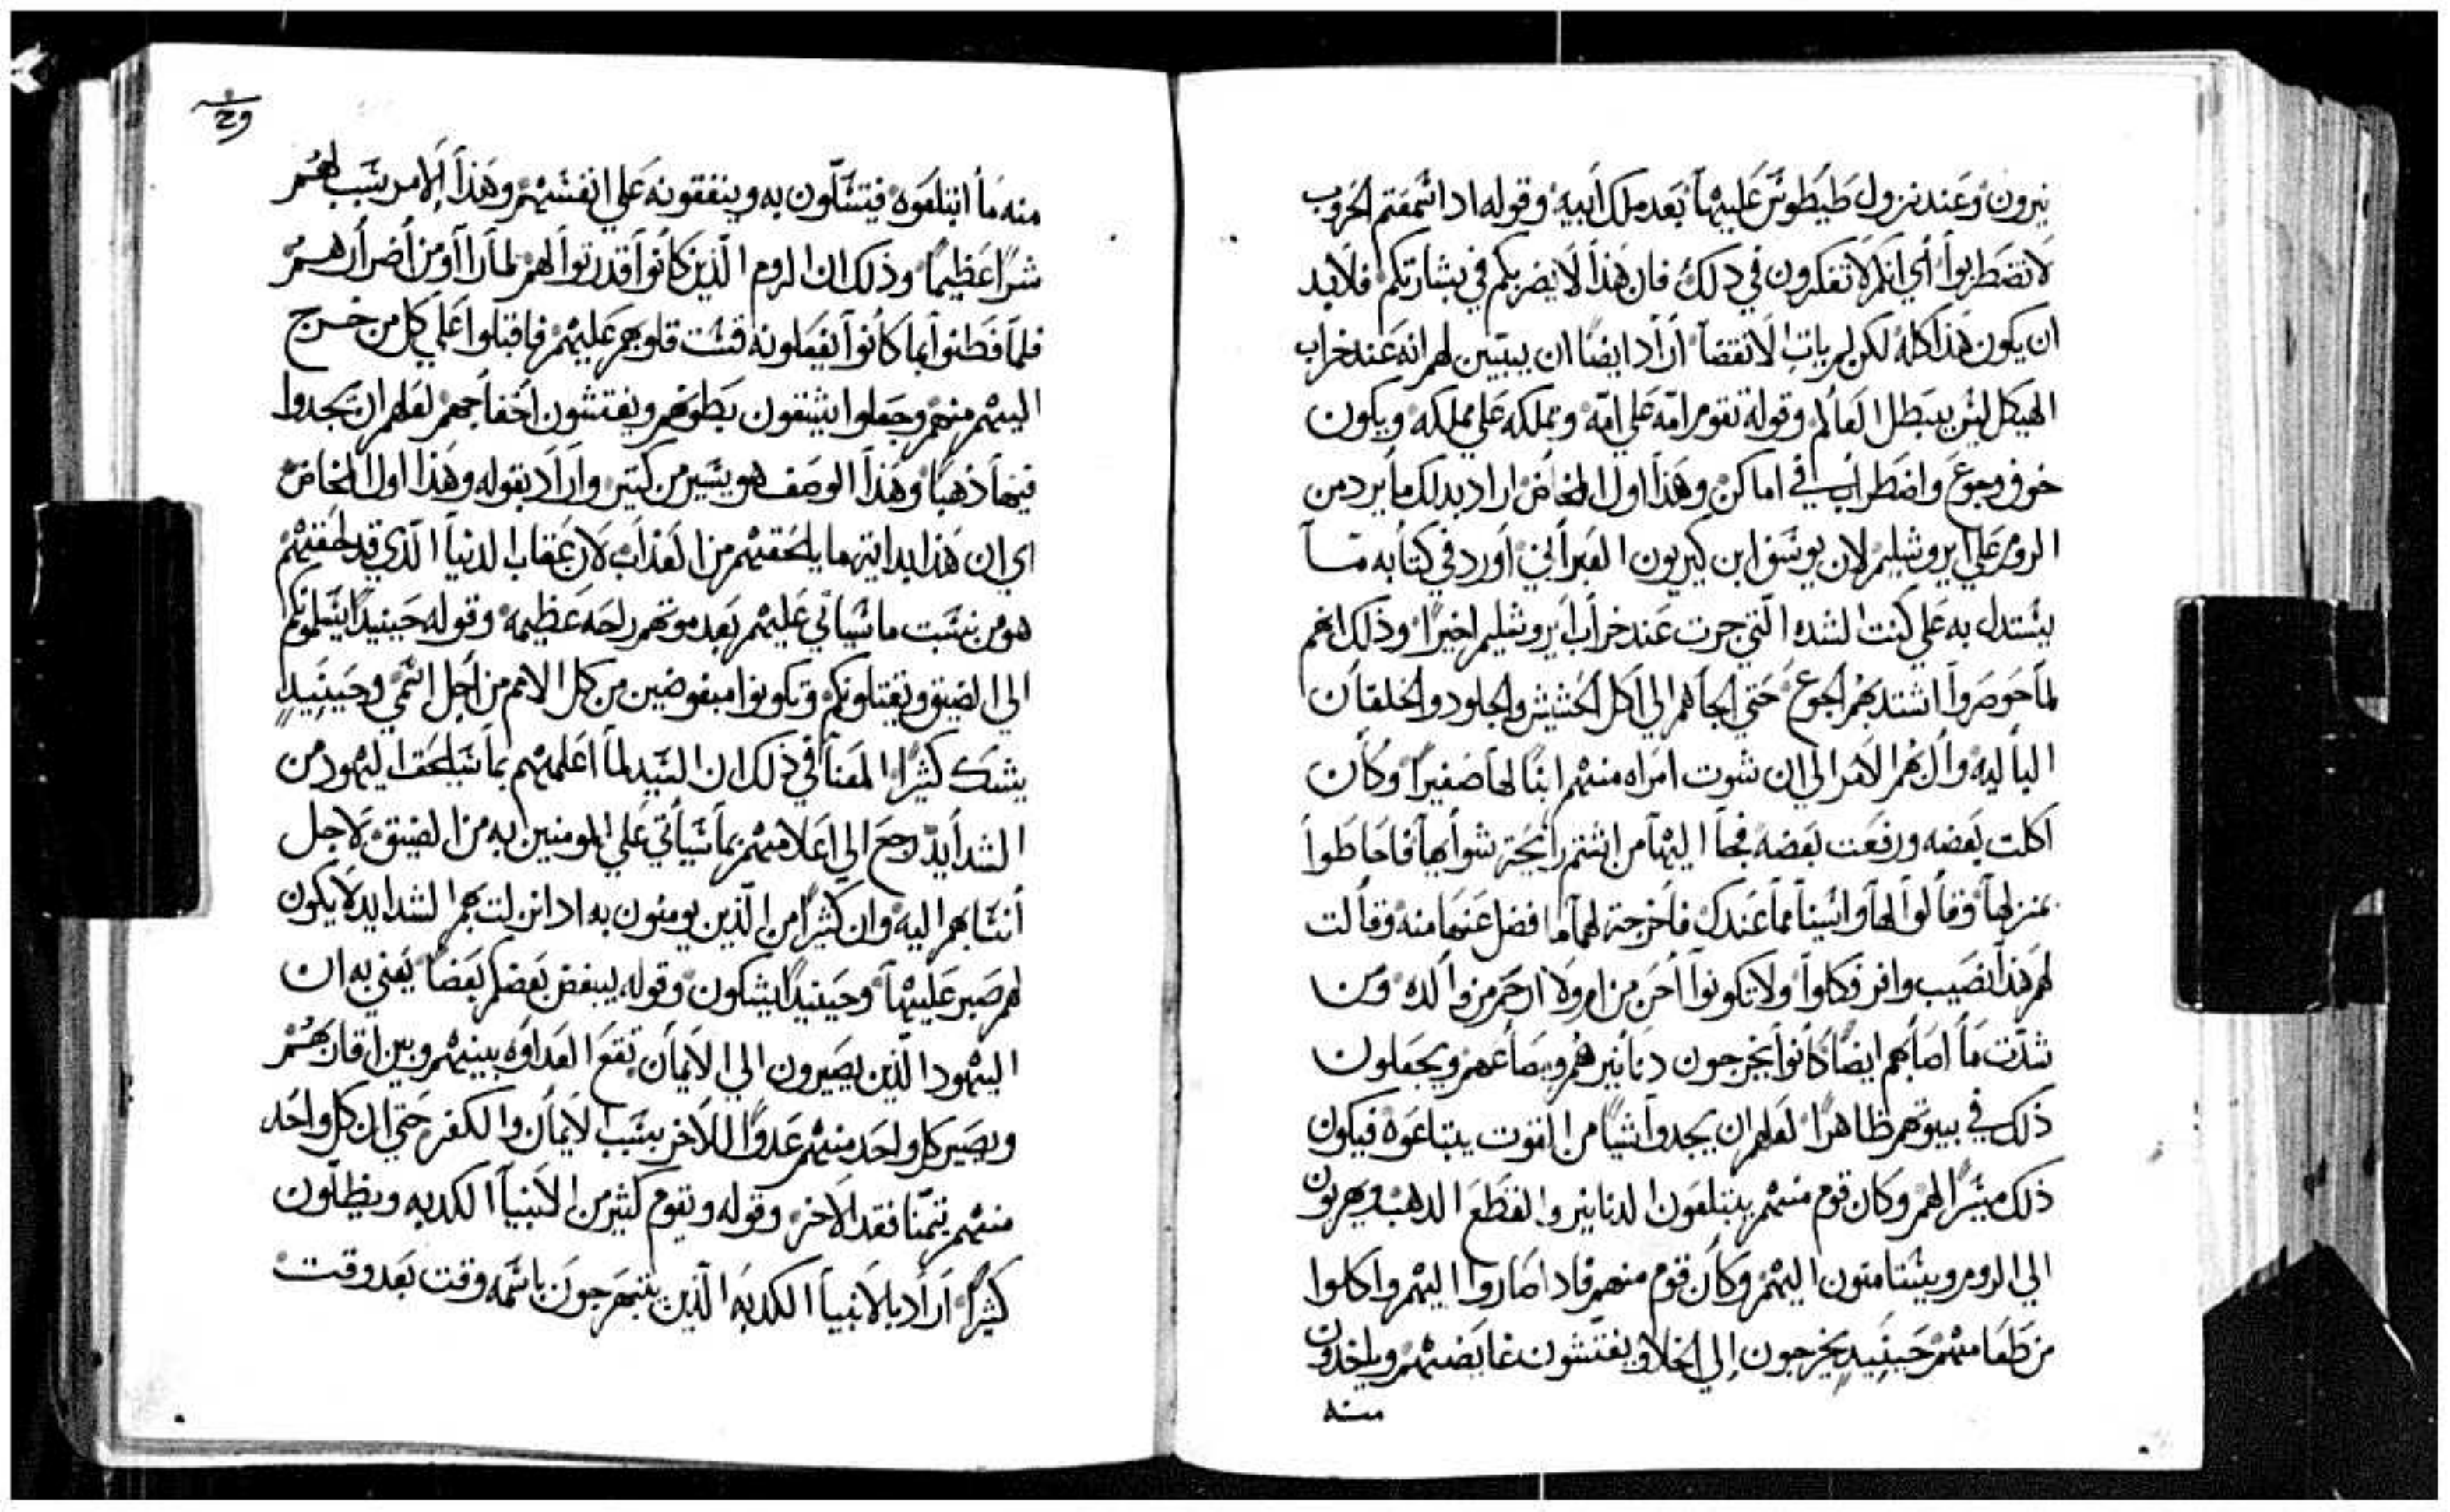 نيرون وعند نزول طيطوس عليها بعد ملك ابيه وقوله ادا سمعتم الحروب
لا تضطربوا أي انكم لا تفكرون في دلك فان هذا لا يضر بكم في بشارتكم فلابد
ان يكون هذا كله لكن لم يات الانقضا اراد ايضا ان يبيين لهم انه عند خراب
الهيكل ليس يبطل العالم وقوله تقوم امه على امه ومملكه على مملكه ويكون
خوف وجوع واضطراب في اماكن وهذا اول المخاض اراد بدلك ما يرد من
الروم على ايروشليم لان يوسف ابن كيريون العبراني اورد في كتابه مـا
يستدل به على كنت الشده التي جرت عند خراب ايروشليم اخيرا وذلك انهم
لما حوصروا اشتد بهم الجوع حتى الجاهم الى اكل الحشيش والجلود والخلقان
الباليه وال بهم الامر الى ان شوت امراه منهم ابنا لها صغيرا وكان
اكلت بعضه ورفعت بعضه فجا اليها من اشتم رايحة شوايها فاحاطوا
بمنزلها وقالوا لها واسينا مما عندك فاخرجت لهم ما فضل عنها منه وقالت
لهم هذا نصيب وافر فكلوا ولا تكونوا احن من ام ولا ارحم من والده ومن
شدت ما اصابهم ايضا كانوا يخرجون دنانيرهم وبصاعهم ويجعلون
ذلك في بيوتهم ظاهرا لعلهم ان يجدوا شيا من القوت يبتاعوه فيكون
ذلك ميسرا لهم وكان قوم منهم يبتلعون الدنانير والقطع الدهب ويهربون
الى الروم ويستامنون اليهم وكان قوم منهم فادا صاروا اليهم واكلوا
من طعامهم حينيد يخرجون إلى الخلا ويفتشون غايضهم وياخدون
منه
منه ما ابتلعوه فيتسلون به وينفقونه على انفسهم وهذا الامر سبب لهم
شرا عظيما وذلك ان الروم الذين كانوا قد رتوا لهم لما راا ومن أضرارهم
فلما فطنوا بما كانوا يفعلونه قست قلوبهم عليهم فاقبلوا على كل من خرج
اليهم منهم وجعلوا يشقون بطونهم ويفتشون اخفاجهم لعلهم ان يجدوا
فيها ذهبا وهذا الوصف هو يسير من كتير واراد بقوله وهذا اول المخاض
اي ان هذا بداية ما يلحقهم من العذاب لان عقاب الدنيا الذي قد لحقهم
هو من نسبت ما سياتي عليهم بعد موتهم راحه عظيمه وقوله حينيد يسلمونكم
الى الضيق ويقتلونكم وتكونوا مبغوضين من كل الامم من اجل اسمي وحينيد
يشك كثيرا المعنا في ذلك ان السيد لما اعلمهم بما سيلحق اليهود من
الشدايد رجع الى اعلامهم بما سياتي على المومنين به من الضيق لاجل
أنتسابهم اليه وان كثيرا من الذين يومنون به ادا نزلت بهم الشدايد لا يكون
لهم صبر عليها وحينيد يشكون وقوله يبغض بعضكم بعضا يعني به ان
اليهود الذين يصيرون الى الايمان تقع العداوه بينهم وبين اقاربهم
ويصير كل واحد منهم عدوا للاخر بسبب الايمان والكفر حتى ان كل واحد
منهم يتمنا فقد الاخر وقوله وتقوم كثير من الانبيا الكدبه ويظلون
كثيرا اراد بالانبيا الكدبه الذين يتبهرجون باسمه وقت بعد وقت